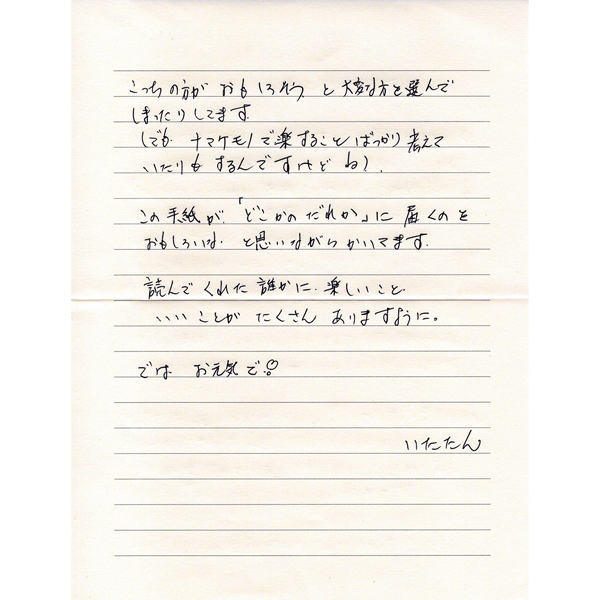 こっちの方が おもしろそう と 大変な方を選んで
しまったりしてます。
(でも、ナマケモノで楽することばっかり考えて
いたりも するんですけど ね)。
この手紙が、「どこかの だれか」に 届くのを
おもしろいな、と思いながら かいてます。
読んで くれた 誰かに、楽しいこと、
いいことが たくさん ありますように。
では お元気で!
いたたん